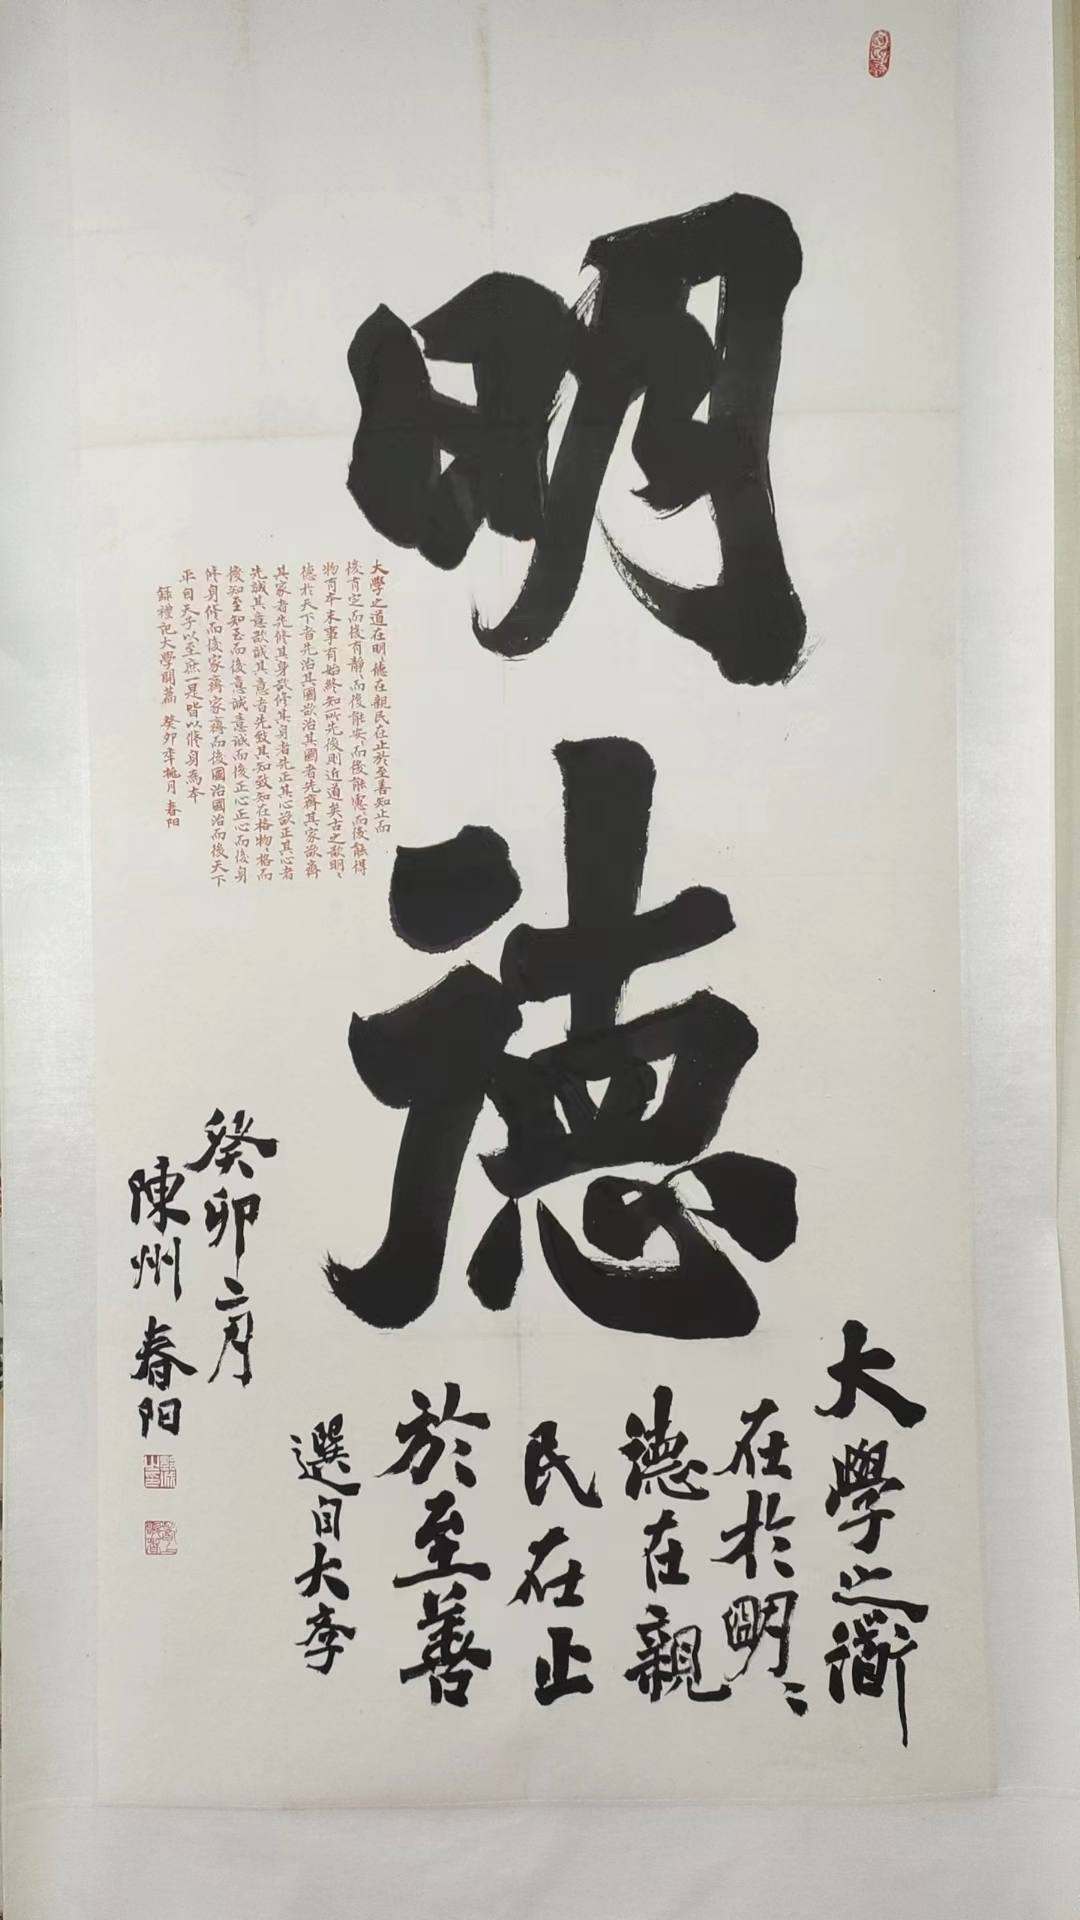 明德
大學之衟
在於明〻
德在親
民在止
於至善
選自大斈
癸卯二月
陳州春阳
大學之道在明〻德在親民在止於至善知止而
後有定而後有靜〻而後能安而後能慮而後能得
物有本末事有始終知所先後則近道矣古之欲明〻
德於天下者先治其國欲治其國者先齊其家欲齊
其家者先修其身欲修其身者先正其心欲正其心者
先誠其意欲誠其意者先致其知致知在格物〻格而
後知至知至而後意誠意誠而後正心正心而後身
修身修而後家齊家齊而後國治國治而後天下
平自天子以至庶一是皆以修身為本
錄禮記大學開篇 癸卯年桃月 春阳